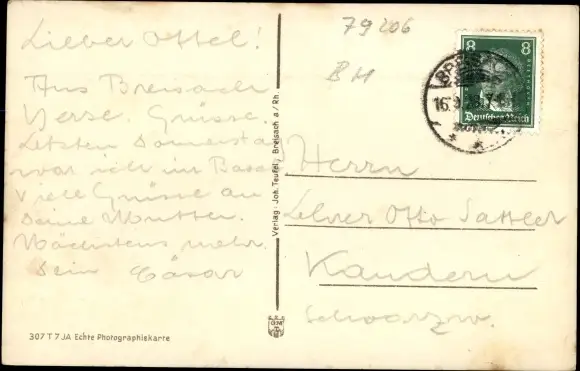 Lieber Ottel!
Aus Breisach
Herzl. Grüsse.
Letzten Donnerstag
war ich in Basel
Viele Grüsse an
Deine Mutter.
Nächstens mehr.
Dein Cäsar
307 T 7 JA Echte Photographiekarte
Verlag: Joh. Teufel, Breisach a/Rh.
79206
BH
8 8
BREIS
Deutsches Reich
Herrn
Lehrer Otto Sattler
Kandern
Schwarzw.